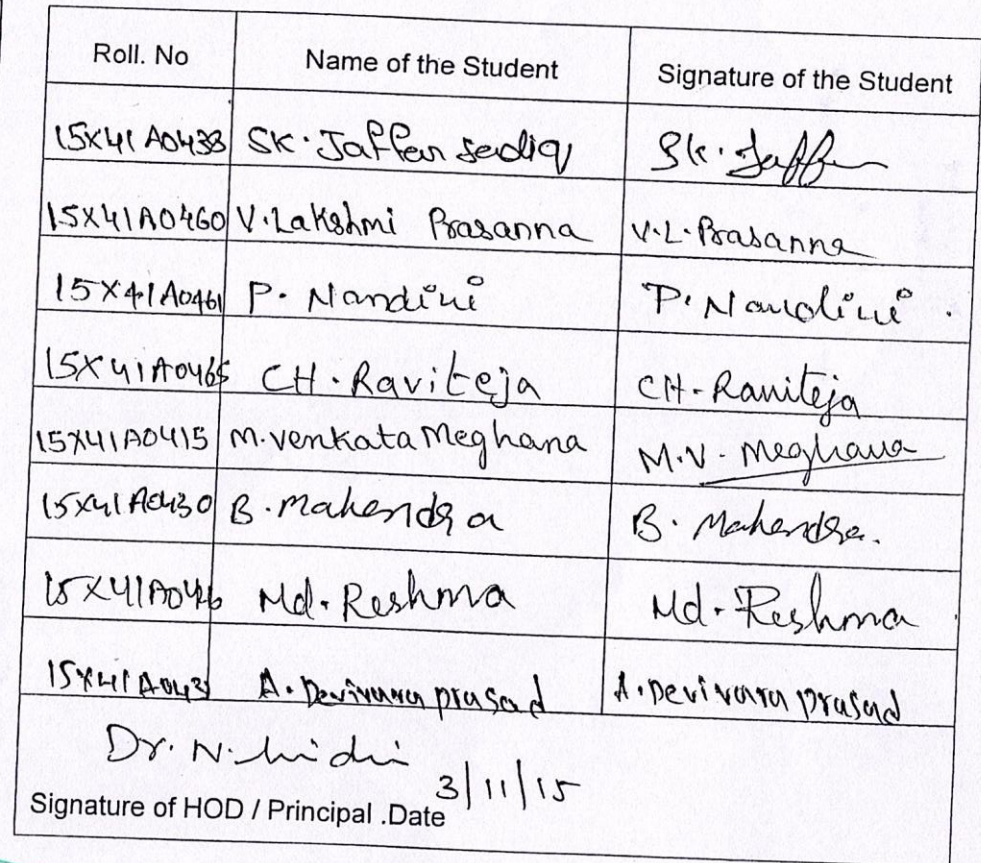 Roll. No Name of the Student Signature of the Student
15X41A0438 SK. Jaffer sediq SK. Jaffer
15X41A0460 V. Lakshmi Prasanna V.L. Prasanna
15X41A0461 P. Nandini P. Nandini.
15X41A0465 CH. Raviteja CH. Raviteja
15X41A0415 M. Venkata Meghana M.V. Meghana
15X41A0430 B. Mahendra B. Mahendra.
Md. Reshma Md. Reshma
A. Devivara prasad A. Devivara prasad
Dr. N. 3/11/15
Signature of HOD / Principal .Date